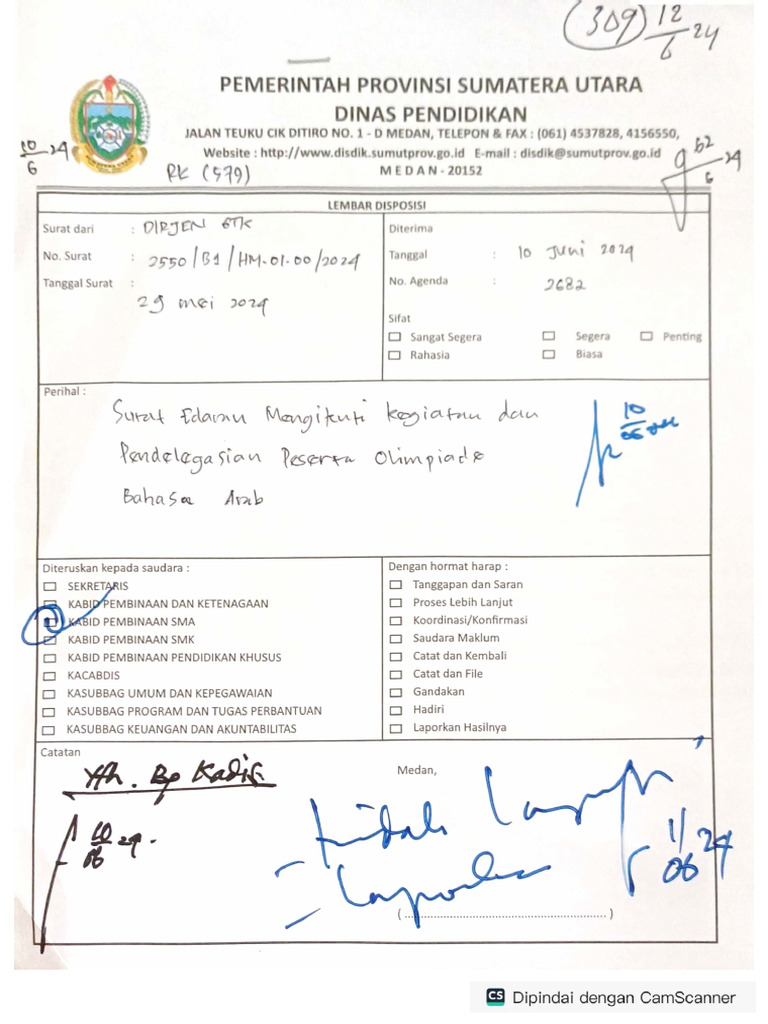 (309) 12/6 24
PEMERINTAH PROVINSI SUMATERA UTARA
DINAS PENDIDIKAN
JALAN TEUKU CIK DITIRO NO. 1 - D MEDAN, TELEPON & FAX : (061) 4537828, 4156550,
Website : http://www.disdik.sumutprov.go.id E-mail : disdik@sumutprov.go.id
MEDAN - 20152
10/6 24
RK (579)
LEMBAR DISPOSISI
Surat dari : DIRJEN GTK
No. Surat : 2550/B1/HM.01.00/2024
Tanggal Surat :
29 mei 2024
Diterima
Tanggal : 10 Juni 2024
No. Agenda : 2682
Sifat
Sangat Segera Segera Penting
Rahasia Biasa
Perihal :
Surat Edaran Mengikuti kegiatan dan
Pendelegasian Peserta Olimpiade
Bahasa Arab
10/06
Diteruskan kepada saudara :
SEKRETARIS
KABID PEMBINAAN DAN KETENAGAAN
KABID PEMBINAAN SMA
KABID PEMBINAAN SMK
KABID PEMBINAAN PENDIDIKAN KHUSUS
KACABDIS
KASUBBAG UMUM DAN KEPEGAWAIAN
KASUBBAG PROGRAM DAN TUGAS PERBANTUAN
KASUBBAG KEUANGAN DAN AKUNTABILITAS
Dengan hormat harap :
Tanggapan dan Saran
Proses Lebih Lanjut
Koordinasi/Konfirmasi
Saudara Maklum
Catat dan Kembali
Catat dan File
Gandakan
Hadiri
Laporkan Hasilnya
Catatan
Yth. Bp Kadis
10/06 24.
Medan,
11/06 24
(........................................................)
CS Dipindai dengan CamScanner